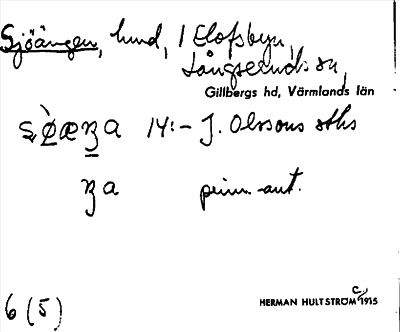 Sjöängen, hund, / Elofsbyn,
Långserud sn,
Gillbergs hd, Värmlands län
14:- J. Olssons sths
prim. ant.
6 (5)
HERMAN HULTSTRÖM c. 1915